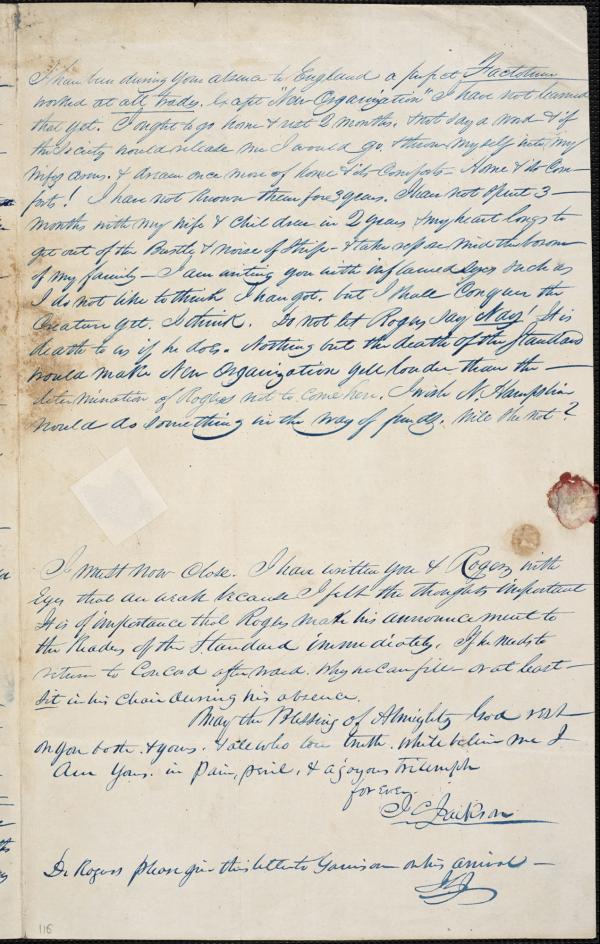 I have been during your absence to England a perfect Factotum
worked at all trades. Except "New Organization" I have not learned
that yet. I ought to go home & rest 2 months, & not say a word & if
the Society would release me I would go, & throw myself into my
wife's arms, & dream once more of home & its Comforts – Home & its Com–
forts! I have not known them for 3 years. I have not spent 3–
months with my wife & Children in 2 years & my heart longs to
get out of the Bustle & noise of Strife – & take repose mid the bosom
of my family – I am writing you with inflamed eyes such as
I do not like to think I have got, but I shall Conquer the
Creature yet. I think. Do not let Rogers say Nay. It is
death to us if he does. Nothing but the death of the Standard
would make New Organization yell louder than the –
determination of Rogers not to come here. I wish N. Hampshire
would do something in the way of funds. Will she not?
I must now Close. I have written you & Rogers with
Eyes that are weak because I felt the thoughts important
It is of importance that Rogers make his announcement to
the Readers of the Standard immediately. If he needs to
return to Concord afterward. Why he can fill – or at least –
Sit in his Chair during his absence.
May the Blessing of Almighty God rest –
on you both. & yours. & all who love truth. while believe me I
Am Yours. in pain, peril, & a joyous triumph
for ever.
J C Jackson
Dr Rogers please give this letter to Garrison on his arrival –
JCJ
116